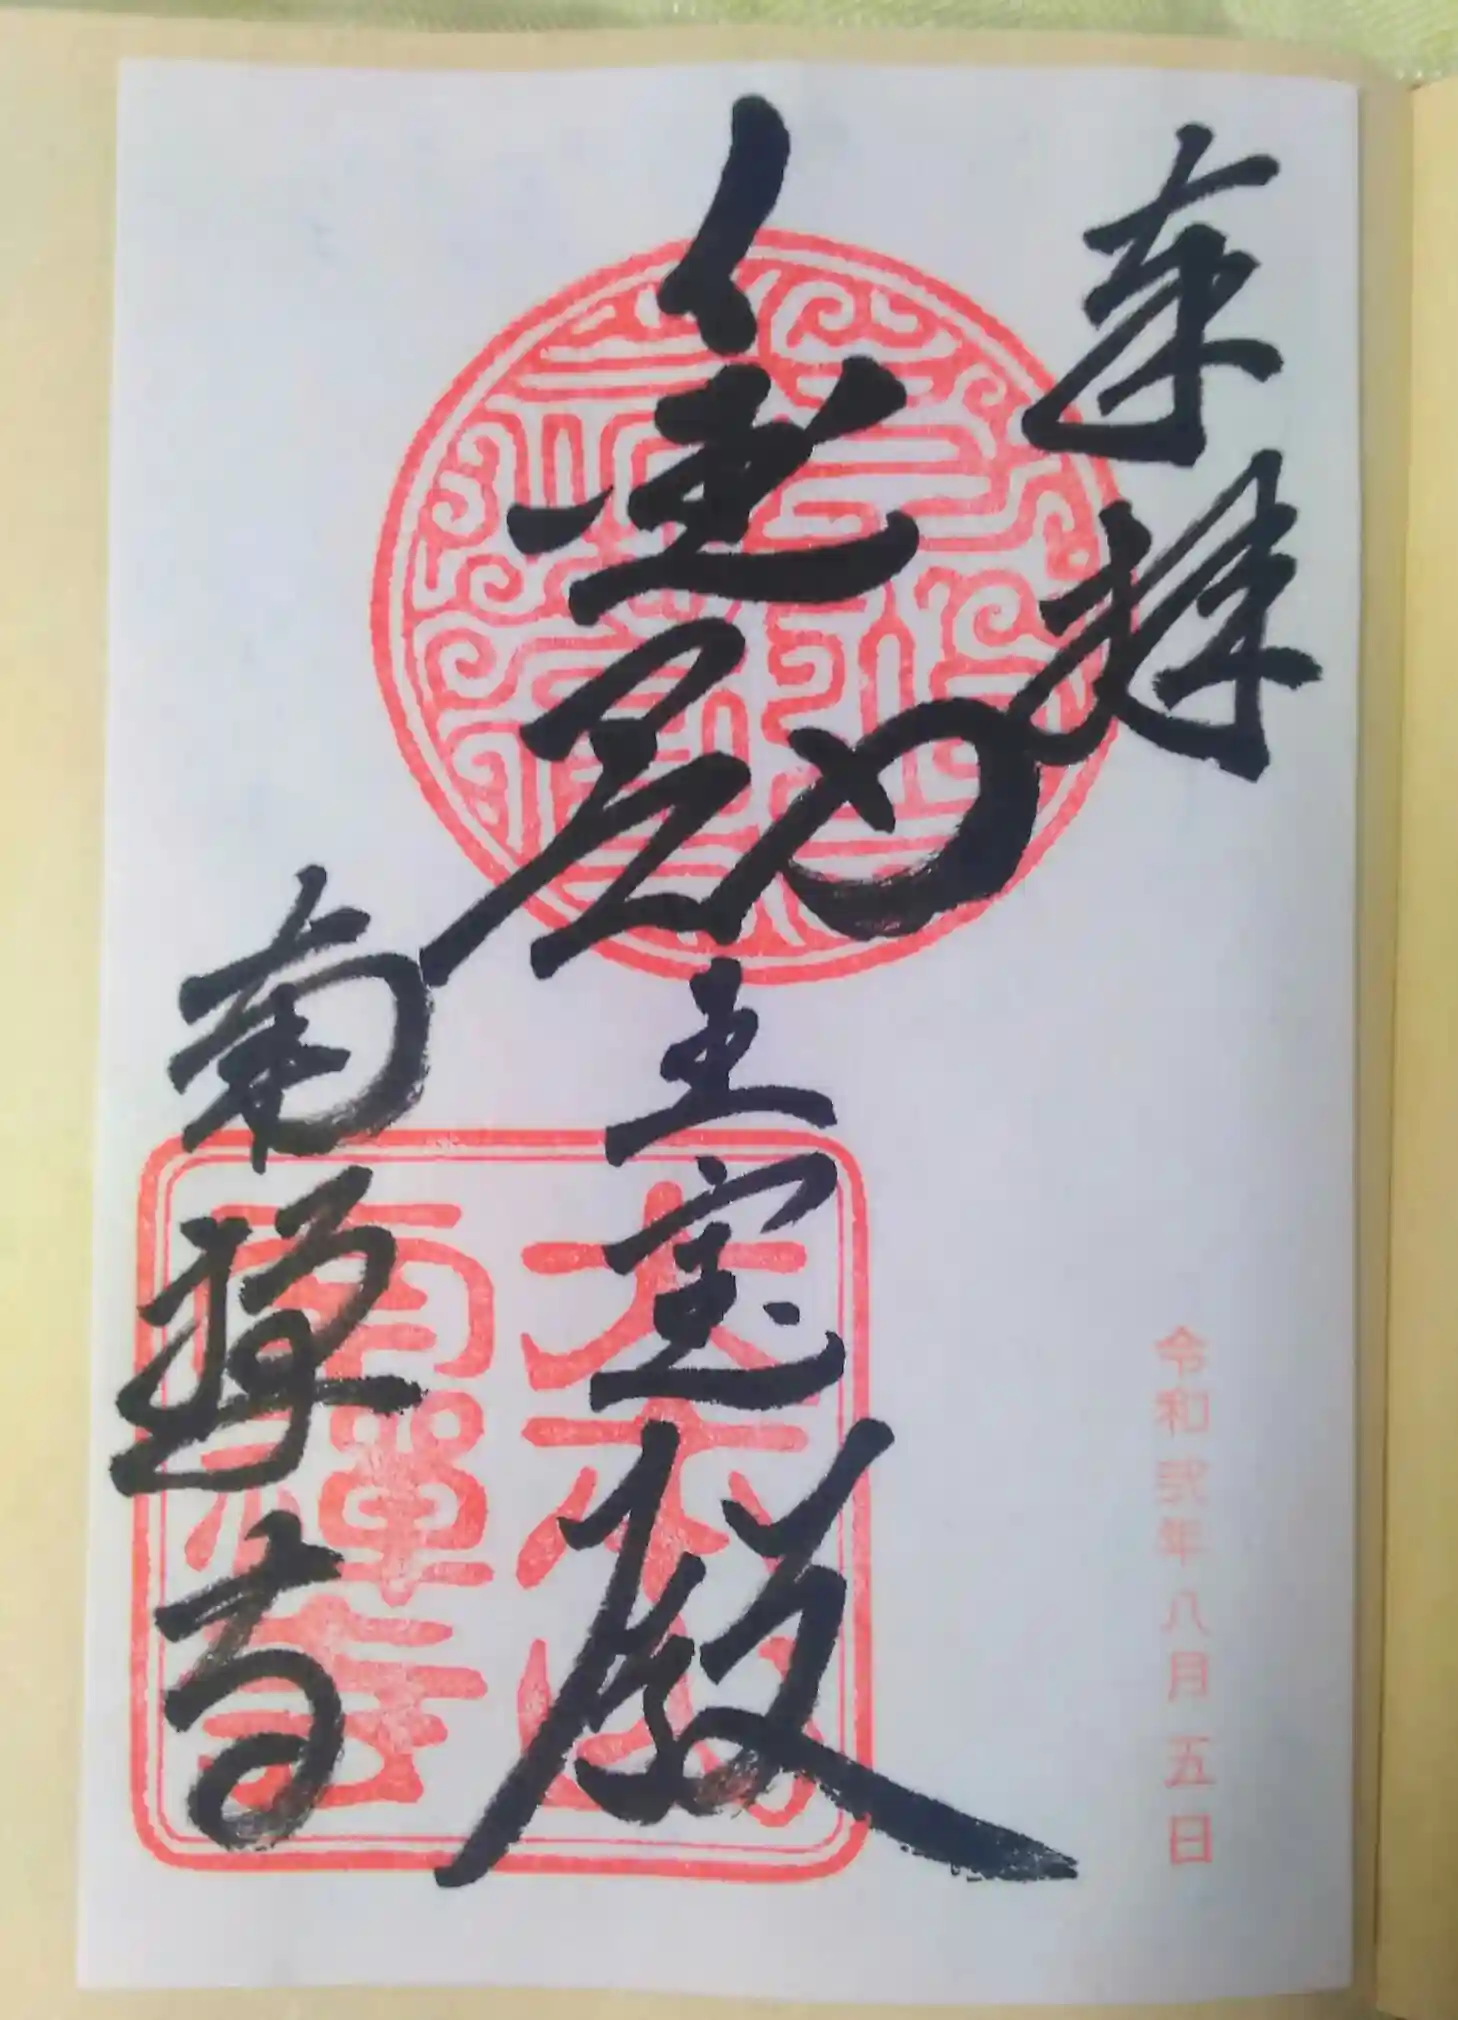 奉拝
金剛王宝殿
南禅寺
大本山
南禪寺
令和弐年八月五日